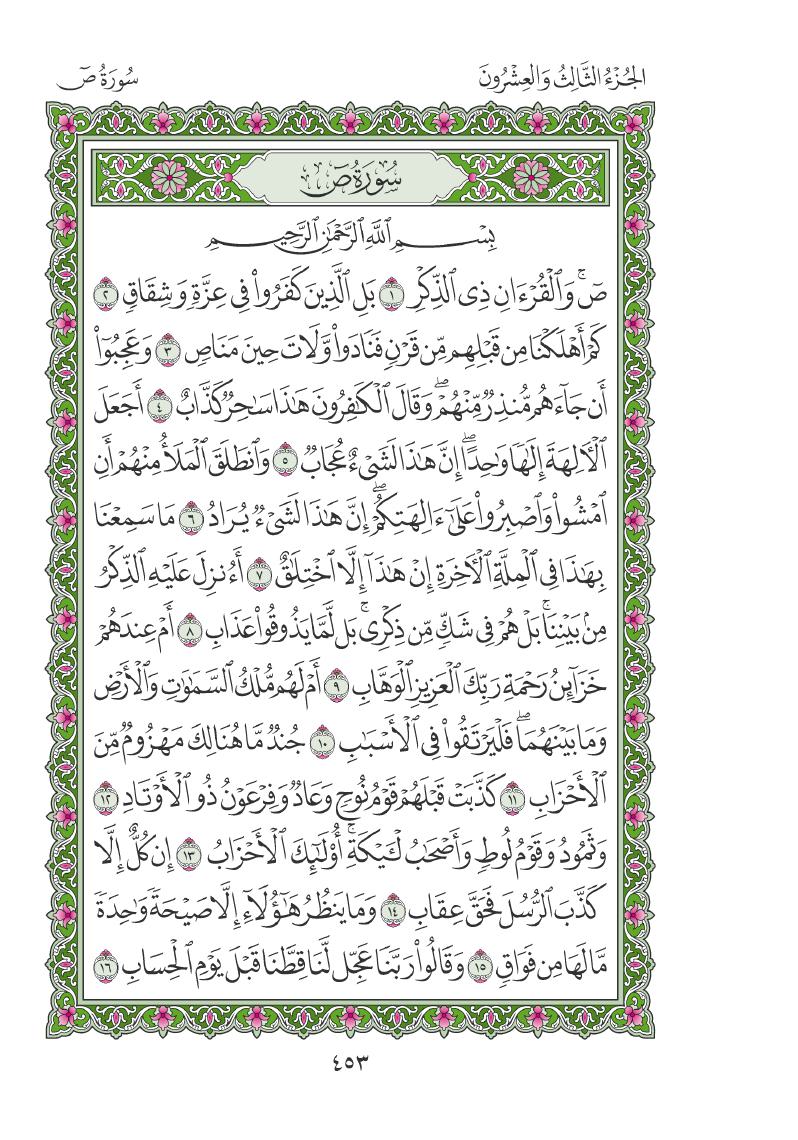 الجُزْءُ الثَّالِثُ وَالعِشْرُونَ
سُورَةُ صٓ
سُورَةُ صٓ
بِسْمِ ٱللَّهِ ٱلرَّحْمَٰنِ ٱلرَّحِيمِ
صٓۚ وَٱلْقُرْءَانِ ذِى ٱلذِّكْرِ ١ بَلِ ٱلَّذِينَ كَفَرُوا۟ فِى عِزَّةٍ وَشِقَاقٍ ٢
كَمْ أَهْلَكْنَا مِن قَبْلِهِم مِّن قَرْنٍ فَنَادَوا۟ وَّلَاتَ حِينَ مَنَاصٍ ٣ وَعَجِبُوٓا۟
أَن جَآءَهُم مُّنذِرٌ مِّنْهُمْۖ وَقَالَ ٱلْكَٰفِرُونَ هَٰذَا سَٰحِرٌ كَذَّابٌ ٤ أَجَعَلَ
ٱلْءَالِهَةَ إِلَٰهًا وَٰحِدًاۖ إِنَّ هَٰذَا لَشَىْءٌ عُجَابٌ ٥ وَٱنطَلَقَ ٱلْمَلَأُ مِنْهُمْ أَنِ
ٱمْشُوا۟ وَٱصْبِرُوا۟ عَلَىٰٓ ءَالِهَتِكُمْۖ إِنَّ هَٰذَا لَشَىْءٌ يُرَادُ ٦ مَا سَمِعْنَا
بِهَٰذَا فِى ٱلْمِلَّةِ ٱلْءَاخِرَةِ إِنْ هَٰذَآ إِلَّا ٱخْتِلَٰقٌ ٧ أَءُنزِلَ عَلَيْهِ ٱلذِّكْرُ
مِنۢ بَيْنِنَاۚ بَلْ هُمْ فِى شَكٍّ مِّن ذِكْرِىۚ بَل لَّمَّا يَذُوقُوا۟ عَذَابِ ٨ أَمْ عِندَهُمْ
خَزَآئِنُ رَحْمَةِ رَبِّكَ ٱلْعَزِيزِ ٱلْوَهَّابِ ٩ أَمْ لَهُم مُّلْكُ ٱلسَّمَٰوَٰتِ وَٱلْأَرْضِ
وَمَا بَيْنَهُمَاۖ فَلْيَرْتَقُوا۟ فِى ٱلْأَسْبَٰبِ ١٠ جُندٌ مَّا هُنَالِكَ مَهْزُومٌ مِّنَ
ٱلْأَحْزَابِ ١١ كَذَّبَتْ قَبْلَهُمْ قَوْمُ نُوحٍ وَعَادٌ وَفِرْعَوْنُ ذُو ٱلْأَوْتَادِ ١٢
وَثَمُودُ وَقَوْمُ لُوطٍ وَأَصْحَٰبُ لْـَٔيْكَةِۚ أُو۟لَٰٓئِكَ ٱلْأَحْزَابُ ١٣ إِن كُلٌّ إِلَّا
كَذَّبَ ٱلرُّسُلَ فَحَقَّ عِقَابِ ١٤ وَمَا يَنظُرُ هَٰٓؤُلَآءِ إِلَّا صَيْحَةً وَٰحِدَةً
مَّا لَهَا مِن فَوَاقٍ ١٥ وَقَالُوا۟ رَبَّنَا عَجِّل لَّنَا قِطَّنَا قَبْلَ يَوْمِ ٱلْحِسَابِ ١٦
٤٥٣